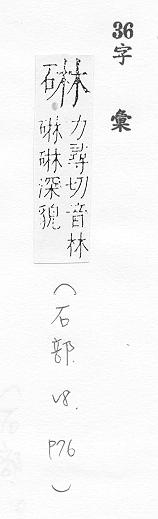 36字彙
碄
力尋切音林
碄碄深貌
(石部 v8. P76)